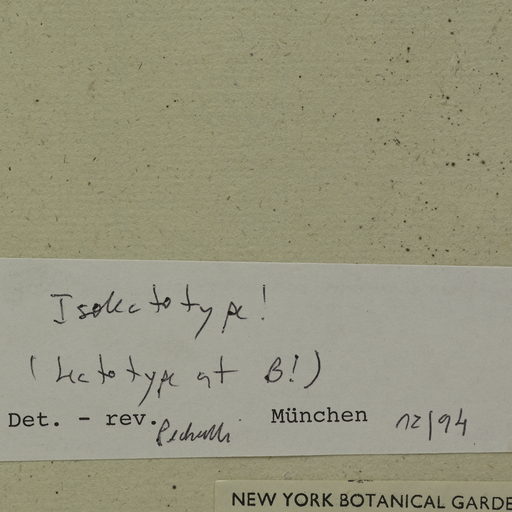 Isolectotype!
(Lectotype at B!)
Det. - rev. München 12/94
NEW YORK BOTANICAL GARDE